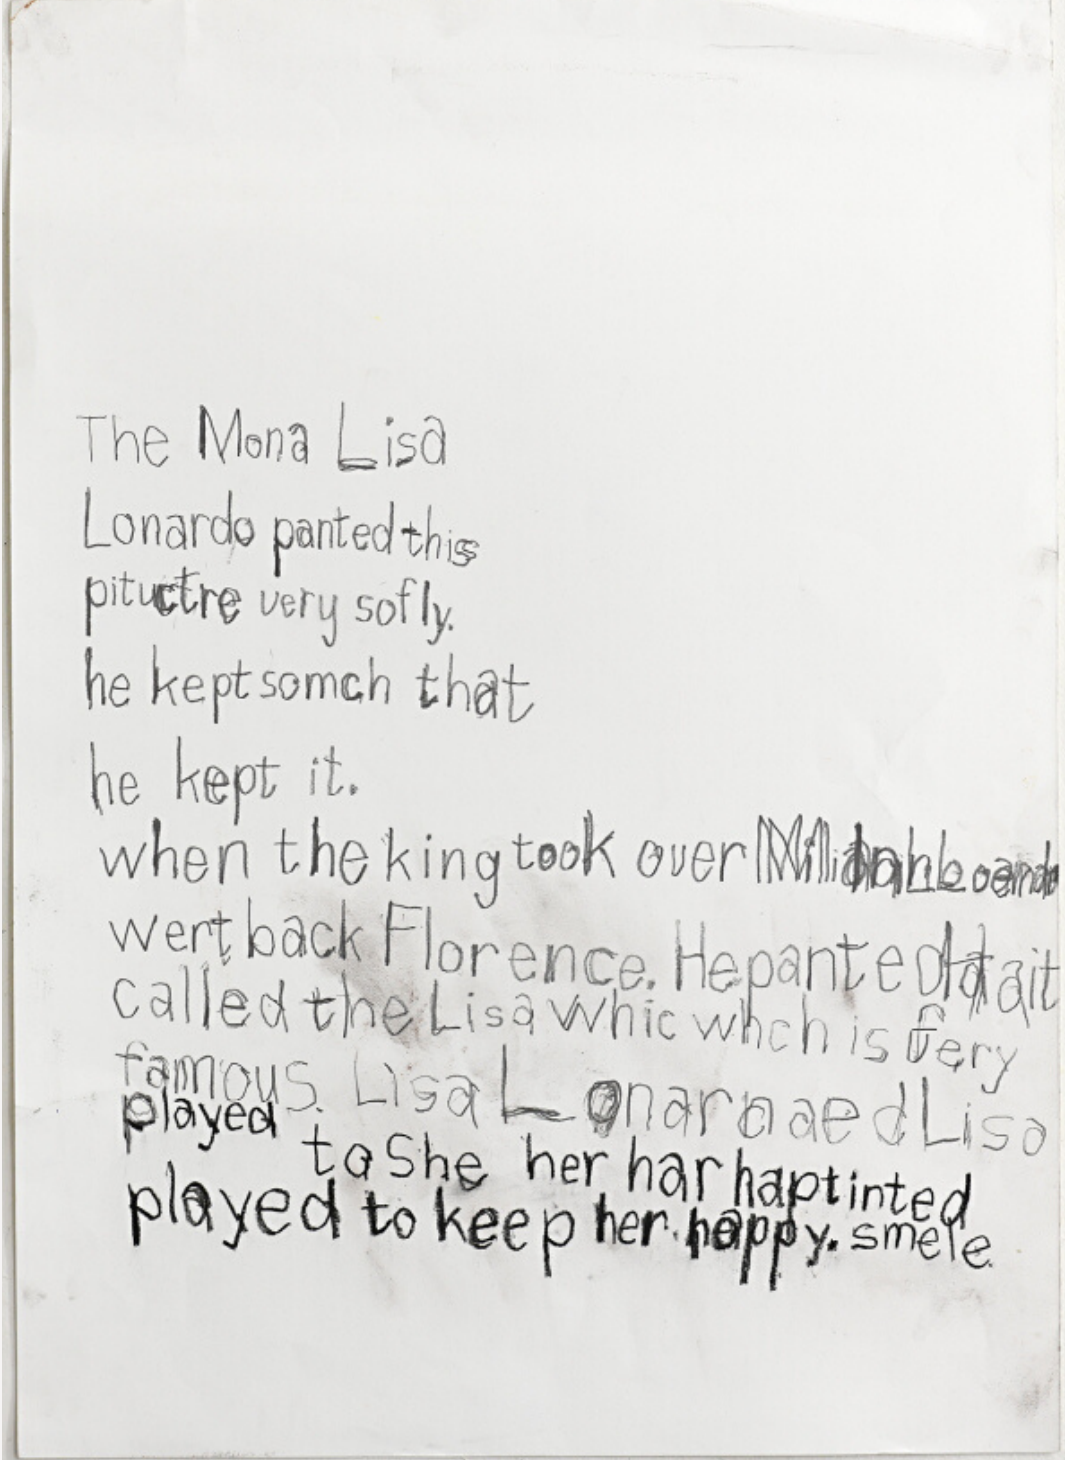 The Mona Lisa
Lonardo panted this
pituctre very sofly.
he kept somch that
he kept it.
when the king took over
wert back Florence. He panted
called the Lisa Whic whch is very
famous. Lisa Lisa
played
to She her har
played to keep her happy. smele.